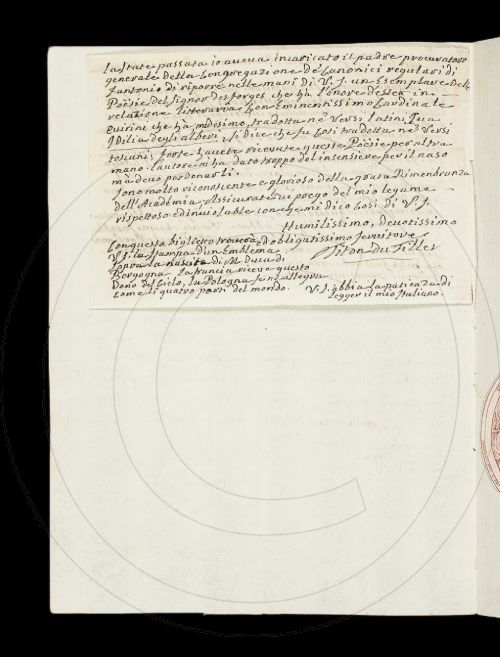 la state passata io aveva incaricato il padre procuratore
generale della Congregazione de' Canonici regulari di
S. Antonio di riporre nelle mani di V. S. un Esemplare delle
Poësie del Signor des forges che ha l'onore d'esser in
relazione litteraria con Eminentissimo Cardinale
Quirini che ha medesimo tradotta ne' versi latini sua
Idilia degli alberi, si dice che fu cosi tradotta ne' versi
toscani, forse havete ricevute queste Poësie per altra
mano. l'autore m'ha dato troppo del incensiere per il naso
ma devo pardonarli.
sono molto riconoscente e glorioso della grata Rimembranza
dell'Academia, Assicurate vi prego del mio legame
rispettoso ed inviolable con che mi dico cosi di V. S.
Humilissimo, devotissimo
ed obligatissimo servitore
Titon du Tillet
Con questo biglietto troverà
V. S. la stampa d'un Emblema
sopra la nascita di M. Duca di
Borgogna. la francia riceve questo
Dono del Cielo, la Pologna s'en allegra
come li quatro parti del mondo.
V. S. abbia la patienza di
legger il mio Italiano.